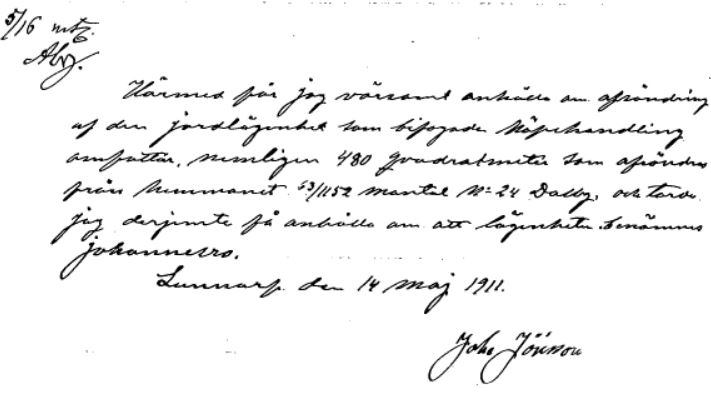 5/16 mtg.
Abg.
Härmed får jag vörsamt anhålla om afsöndring
af den jordlägenhet som bifogade köpehandling
omfattar, nemligen 480 qvadratmeter som afsöndras
från hemmanet 63/1152 mantal No 24 Dalby, och torde
jag derjemte få anhålla om att lägenheten benämnes
Johannesro.
Lunnarp den 14 Maj 1911.
John Jönsson